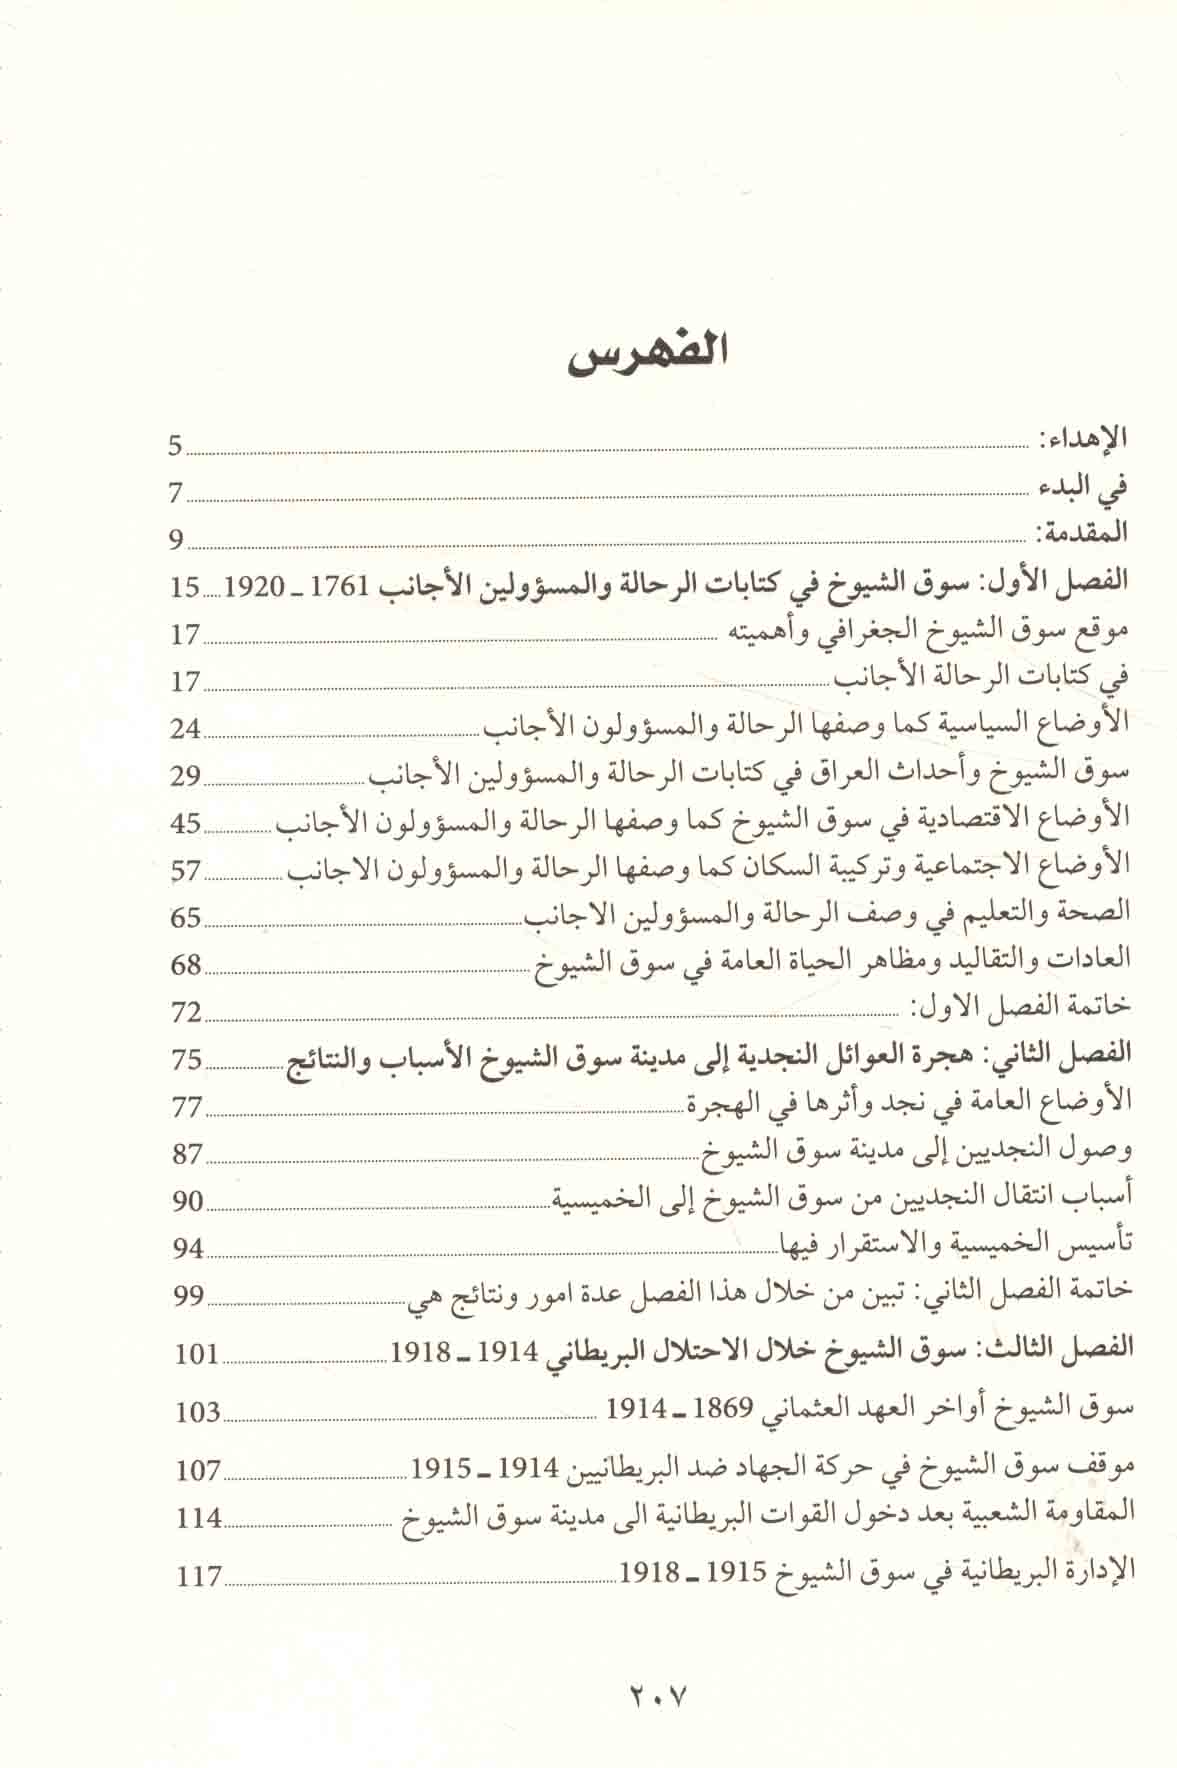 الفهرس
الإهداء: 5
في البدء 7
المقدمة: 9
الفصل الأول: سوق الشيوخ في كتابات الرحالة والمسؤولين الأجانب 1761 ـ 1920 15
موقع سوق الشيوخ الجغرافي وأهميته 17
في كتابات الرحالة الأجانب 17
الأوضاع السياسية كما وصفها الرحالة والمسؤولون الأجانب 24
سوق الشيوخ وأحداث العراق في كتابات الرحالة والمسؤولين الأجانب 29
الأوضاع الاقتصادية في سوق الشيوخ كما وصفها الرحالة والمسؤولون الأجانب 45
الأوضاع الاجتماعية وتركيبة السكان كما وصفها الرحالة والمسؤولون الاجانب 57
الصحة والتعليم في وصف الرحالة والمسؤولين الاجانب 65
العادات والتقاليد ومظاهر الحياة العامة في سوق الشيوخ 68
خاتمة الفصل الاول: 72
الفصل الثاني: هجرة العوائل النجدية إلى مدينة سوق الشيوخ الأسباب والنتائج 75
الأوضاع العامة في نجد وأثرها في الهجرة 77
وصول النجديين إلى مدينة سوق الشيوخ 87
أسباب انتقال النجديين من سوق الشيوخ إلى الخميسية 90
تأسيس الخميسية والاستقرار فيها 94
خاتمة الفصل الثاني: تبين من خلال هذا الفصل عدة امور ونتائج هي 99
الفصل الثالث: سوق الشيوخ خلال الاحتلال البريطاني 1914 ـ 1918 101
سوق الشيوخ أواخر العهد العثماني 1869 ـ 1914 103
موقف سوق الشيوخ في حركة الجهاد ضد البريطانيين 1914 ـ 1915 107
المقاومة الشعبية بعد دخول القوات البريطانية الى مدينة سوق الشيوخ 114
الإدارة البريطانية في سوق الشيوخ 1915 ـ 1918 117
٢٠٧